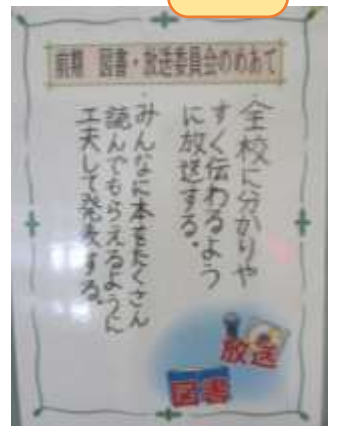 前期 図書・放送委員会のめあて
・全校に分かりや
すく伝わるよう
に放送する。
・みんなに本をたくさん
読んでもらえるように
工夫して発表する。
放送
図書